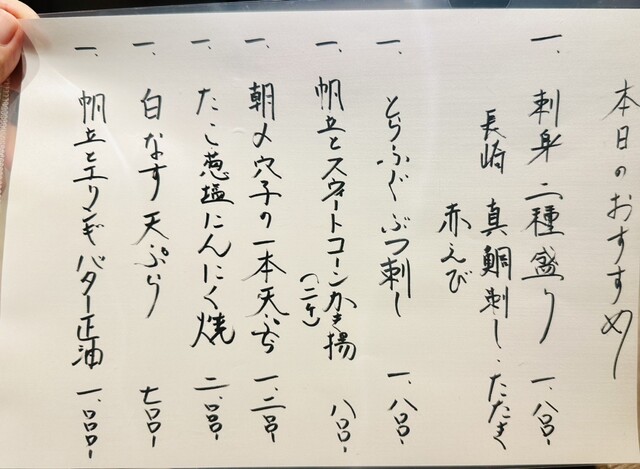 本日のおすすめ
一、刺身二種盛り 一、八〇〇-
長崎 真鯛刺し・たたき
赤えび
一、とらふぐぶつ刺し 一、八〇〇-
一、帆立とスウィートコーンかき揚(二ケ) 八〇〇-
一、朝〆穴子の一本天ぷら 一、二〇〇-
一、たこ葱塩にんにく焼 二、〇〇〇-
一、白なす天ぷら 七〇〇-
一、帆立とエリンギバター正油 一、〇〇〇-